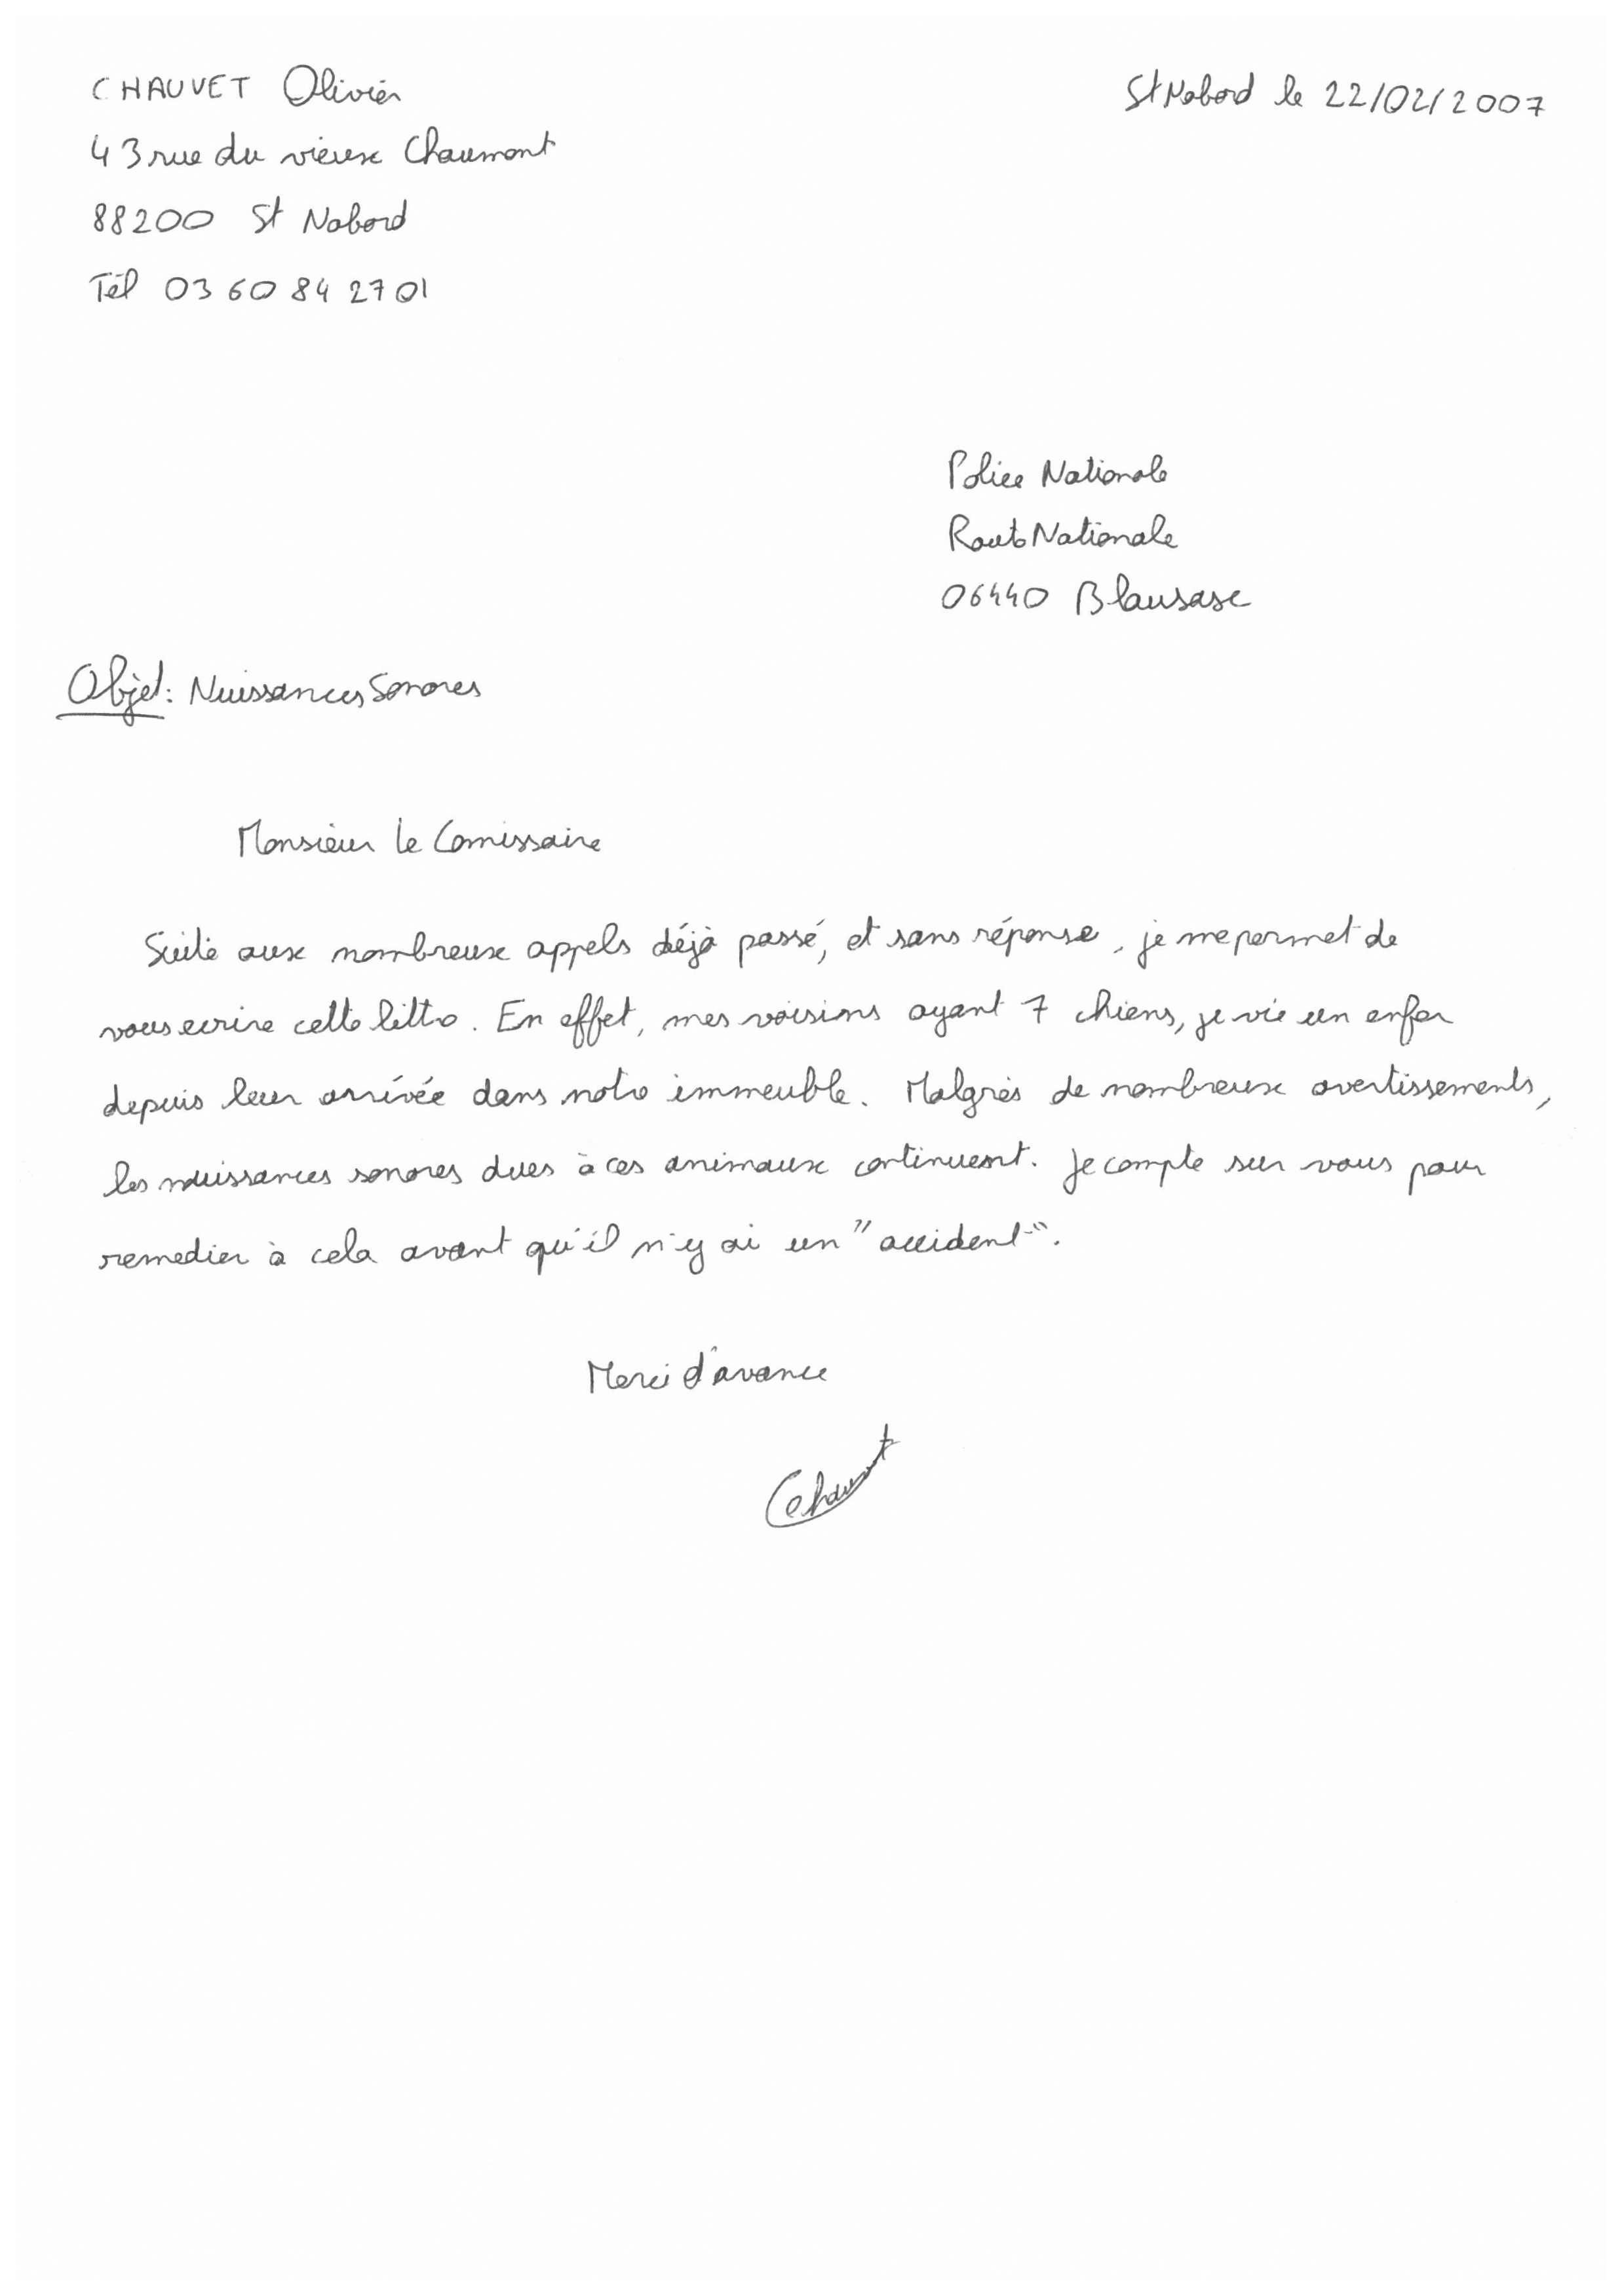 CHAUVET Olivier
43 rue du vieux Chaumont
88200 St Nabord
Tél 03 60 84 27 01
St Nabord le 22/02/2007
Police Nationale
Route Nationale
06440 Blausasc
Objet: Nuissances Sonores
Monsieur le Comissaire
Suite aux nombreux appels déjà passé, et sans réponse, je me permet de
vous ecrire cette lettre. En effet, mes voisins ayant 7 chiens, je vie un enfer
depuis leur arrivée dans notre immeuble. Malgrès de nombreux avertissements,
les nuissances sonores dues à ces animaux continuent. Je compte sur vous pour
remedier à cela avant qu'il n'y ai un "accident".
Merci d'avance
Chauvet